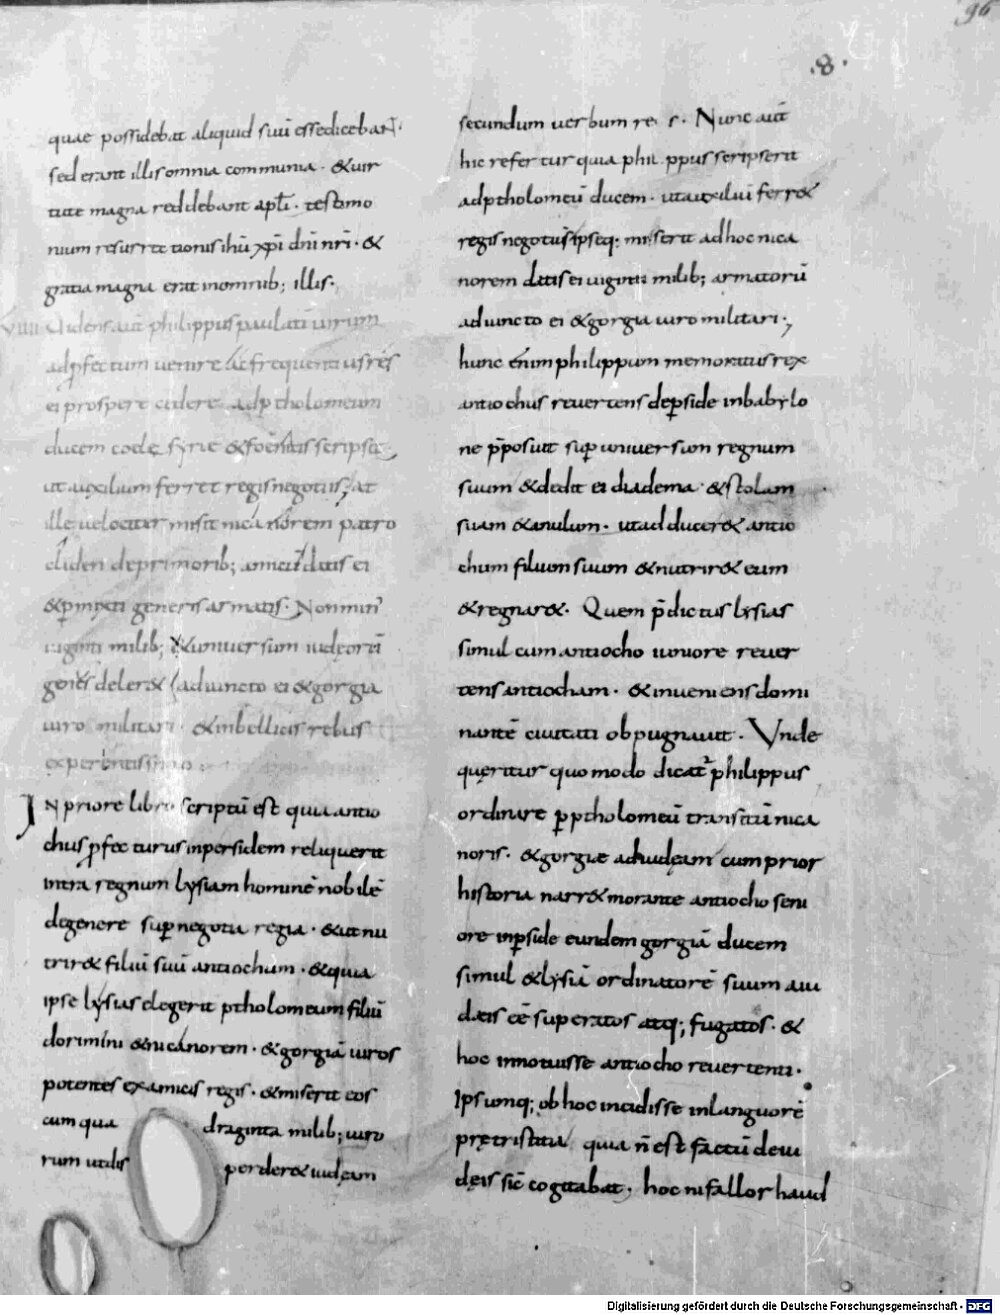 96
·8·
quae possidebat aliquid suū esse dicebaN·
sed erant illis omnia communia · & uir
tute magna reddebant apłi · testimo
nium resurrectionis ihū xp̄i dn̄i nr̄i · &
gratia magna erat in omnib; illis·
VIIII Uidens aūt philippus paulatī uirum
ad p̄fectum uenire ac frequentius res
ei prospere cedere ad ptholomeum
ducem coelę syrie & foenicis scripsit
ut auxilium ferret regis negotiis, at
ille uelociter misit nicanorem patro
cli de primorib; amicū datis ei
& p̄mixti generis armatis· Non min᾽
uiginti milib; & uniuersum iudęorū
genus deler& adiuncto ei & gorgia
uiro militari · & in bellicis rebus
experientissimo
IN priore libro scriptū est quia antio
chus p̄fecturus in persidem reliquerit
intra regnum lysiam hominē nobilē
de genere sup̄ negotia regia · & ut nu
trir& filiū suū antiochum · & quia
ipse lysias elegerit ptholomeum filiū
dorimini & nicanorem · & gorgiā uiros
potentes ex amicis regis · & miserit eos
cum qua draginta milib; uiro
rum ut dis perder& iudęam
secundum uerbum re s · Nunc aūt
hic refertur quia phil ppus scripserit
ad ptholomeū ducem · ut auxiliū ferr&
regis negotiis ipseq; miserit ad hoc nica
norem datis ei uiginti milib; armatorū
adiuncto ei & gorgia uiro militari·,
hunc enim philippum memoratus rex
antiochus reuertens de p̄side in babylo
ne p̄posuit sup̄ uniuersum regnum
suum & dedit ei diadema · & stolam
suam & anulum · ut adducer& antio
chum filium suum & nutrir& eum
& regnar&· Quem p̄dictus lysias
simul cum antiocho iuniore reuer
tens antiochiam · & inueniens domi
nantē ciuitati obpugnauit · Vnde
quęritur quomodo dicat᾽ philippus
ordinare p̄ ptholomeū transitū nica
noris · & gorgiae ad iudęam cum prior
historia narr& morante antiocho seni
ore in p̄side eundem gorgiā ducem
simul & lysiā ordinatorē suum a iu
dæis ēē superatos atq; fugatos · &
hoc innotuisse antiocho reuertenti ·
Ipsumq; ob hoc incidisse in languorē
prę tristitia quia n̄ est factū de iu
dęis sic̄ cogitabat · hoc ni fallor haud
Digitalisierung gefördert durch die Deutsche Forschungsgemeinschaft - DFG